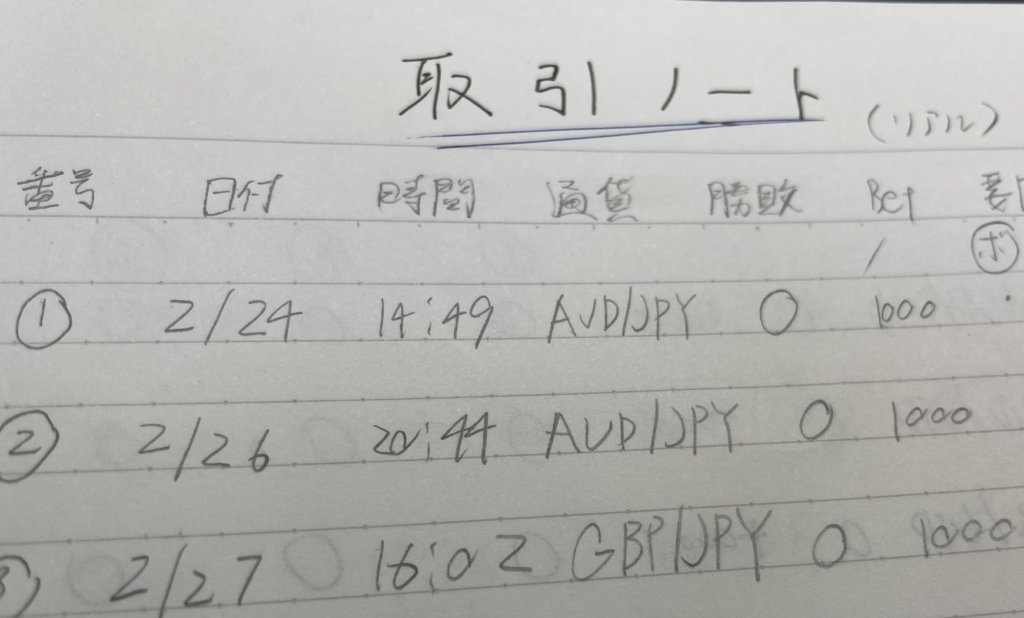 取引ノート (リアル)
番号 日付 時間 通貨 勝敗 Bet
/ ボ
① 2/24 14:49 AUD/JPY 〇 1000
② 2/26 20:44 AUD/JPY 〇 1000
③ 2/27 16:02 GBP/JPY 〇 1000